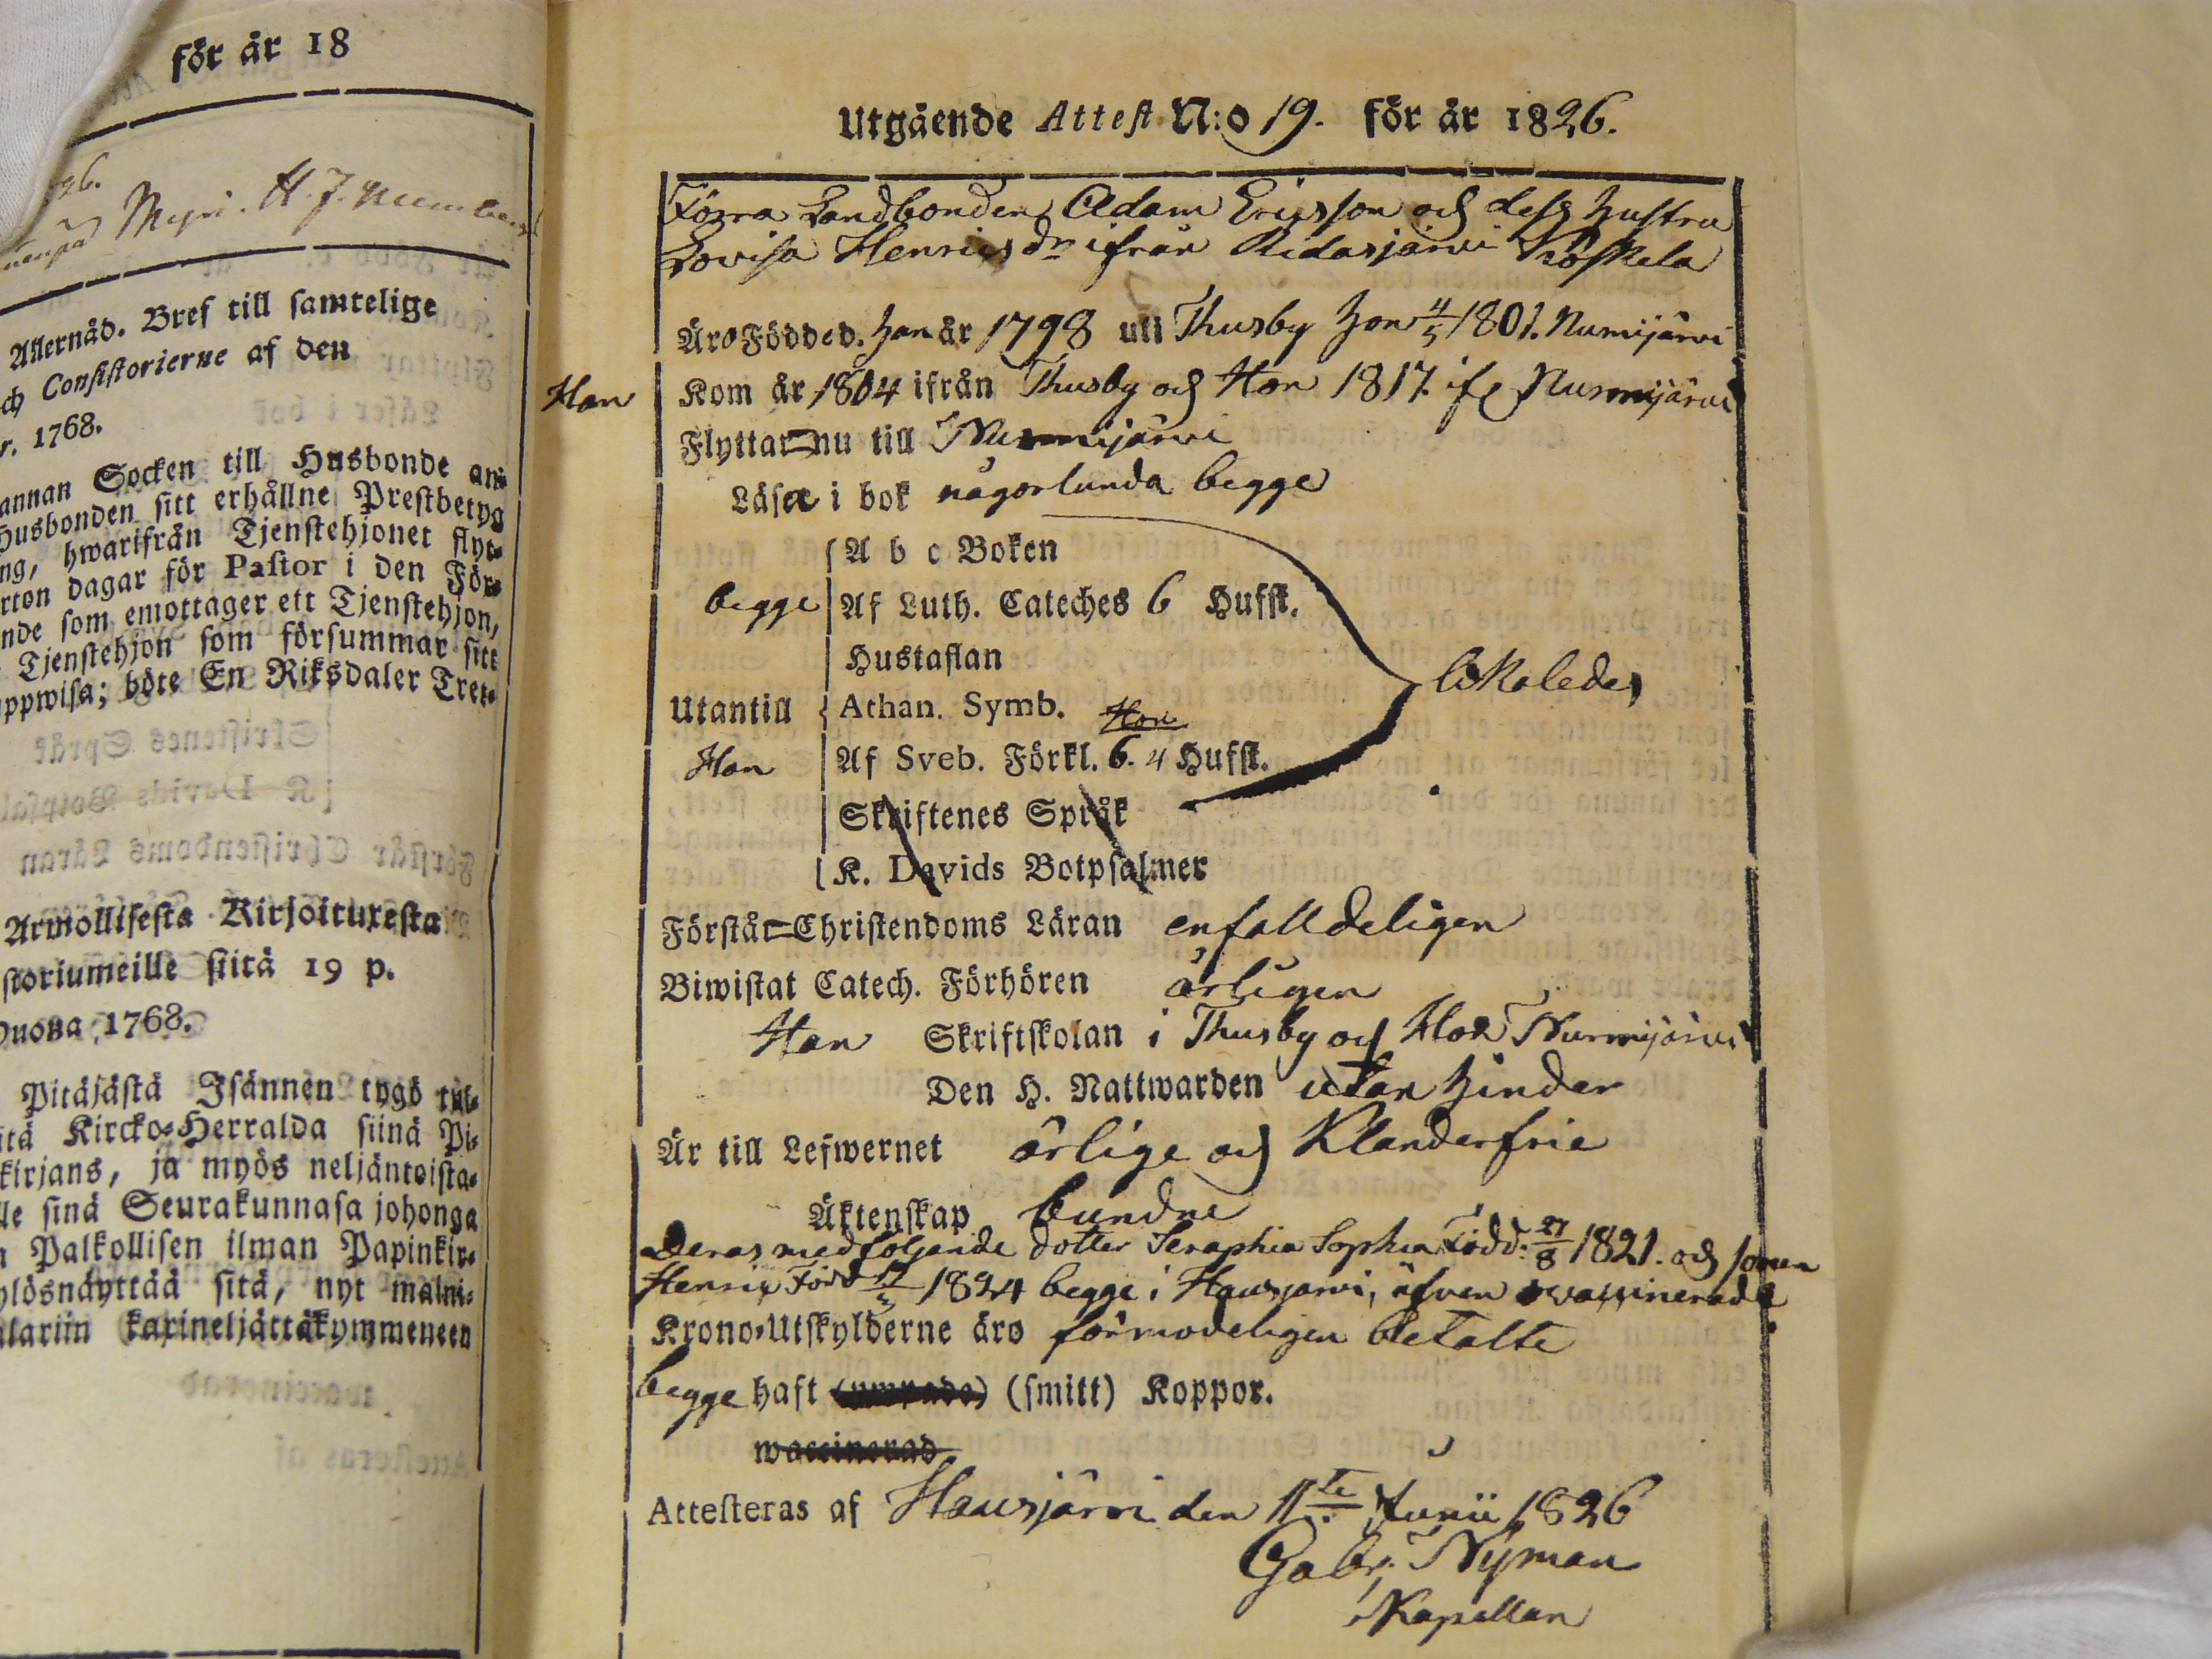 för år 18
Mejri. H. J.
Allernåd. Bref till samtelige
ch Consistorierne af den
r. 1768.
annan Socken till Husbonde an-
Husbonden sitt erhållne Prestbetyg
ng, hwarifrån Tjenstehjonet flyt-
rton dagar för Pastor i den För-
nde som emottager ett Tjenstehjon,
Tjenstehjon som försummar sitt
ppwisa; böte En Riksdaler Tret-
Armollisesta Kirjoituxesta
storiumeille siitä 19 p.
uona 1768.
Pitäjästä Isännen tygö tul-
itä Kircko-Herralda siinä Pi-
kirjans, ja myös neljäntoista-
le sinä Seurakunnasa johonga
n Palkollisen ilman Papinkir-
ylösnäyttää sitä, nyt malni-
lariin karineljättäkymmeneen
Utgående Attest N:o 19. för år 1826.
Förra Landbonden Adam Ericsson och dess hustru
Lovisa Henricsdr ifrån Ridasjärvi Köskela
Äro Födde d. han år 1798 uti Thusby hon 4/5 1801. Numijärvi
Han Kom år 1804 ifrån Thusby och Hon 1817. ifr Nurmijärvi
Flyttar nu till Nurmijärvi
Läsa i bok någorlunda begge
A b c Boken
begge Af Luth. Cateches 6 Hufst.
Hustaflan likaledes
Utantill Athan. Symb. Hon
Han Af Sveb. Förkl. 6. 4 Hufst.
Skriftenes Språk
K. Davids Botpsalmer
Förstår Christendoms Läran enfalldeligen
Biwistat Catech. Förhören årligen
Han Skriftskolan i Thusby och Hon Nurmijärvi
Den H. Nattwarden utan hinder
Är till Lefwernet ärlige och Klanderfrie
Äktenskap bundne
Deras medföljande dotter Seraphia Sophia Född: 27/8 1821. och sonen
Henric Född 1824 begge i Hausjärvi, äfven vaccinerade
Krono-Utskylderne äro förmodeligen betalte
begge haft (ympade) (smitt) Koppor.
waccinerad
Attesteras af Hausjärvi den 11te Junii 1826
Gabr. Nyman
Kapellan